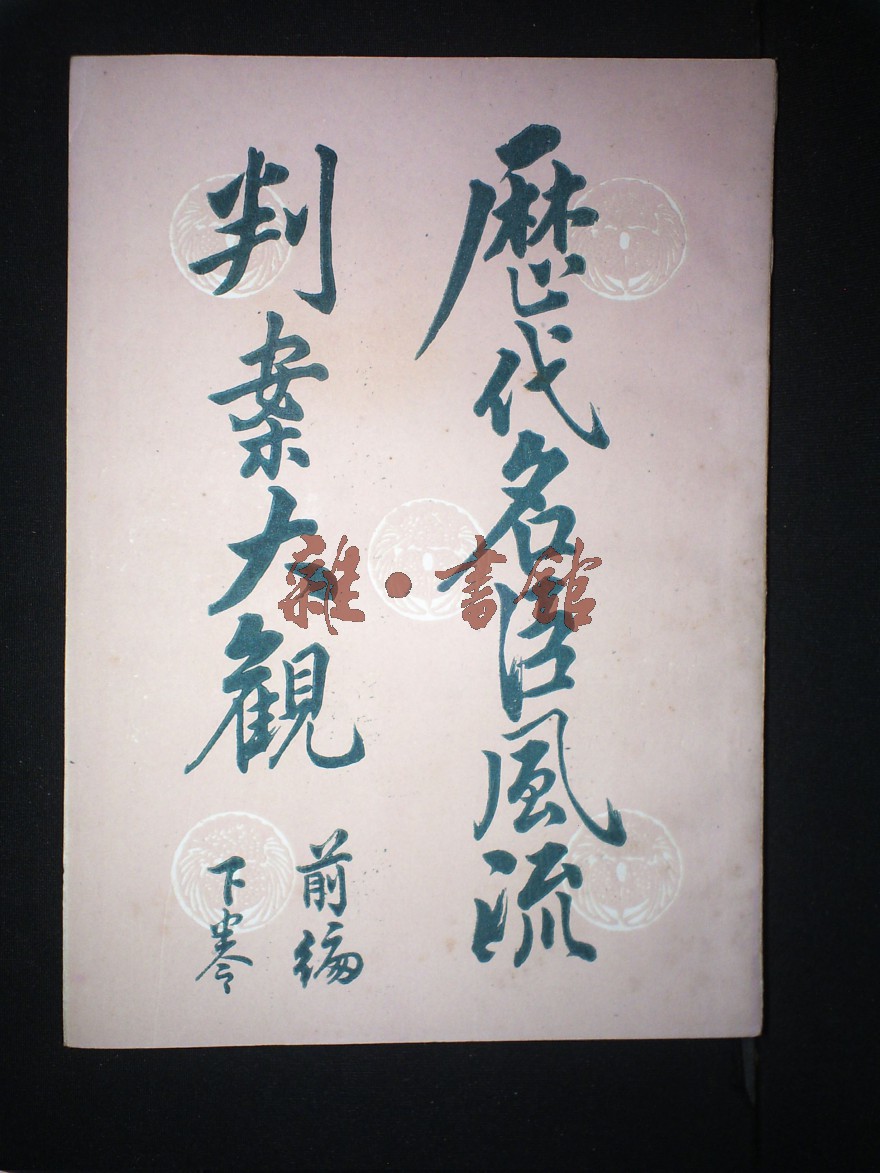 歴代名臣風流
判案大観
前編
下卷
雜·書館